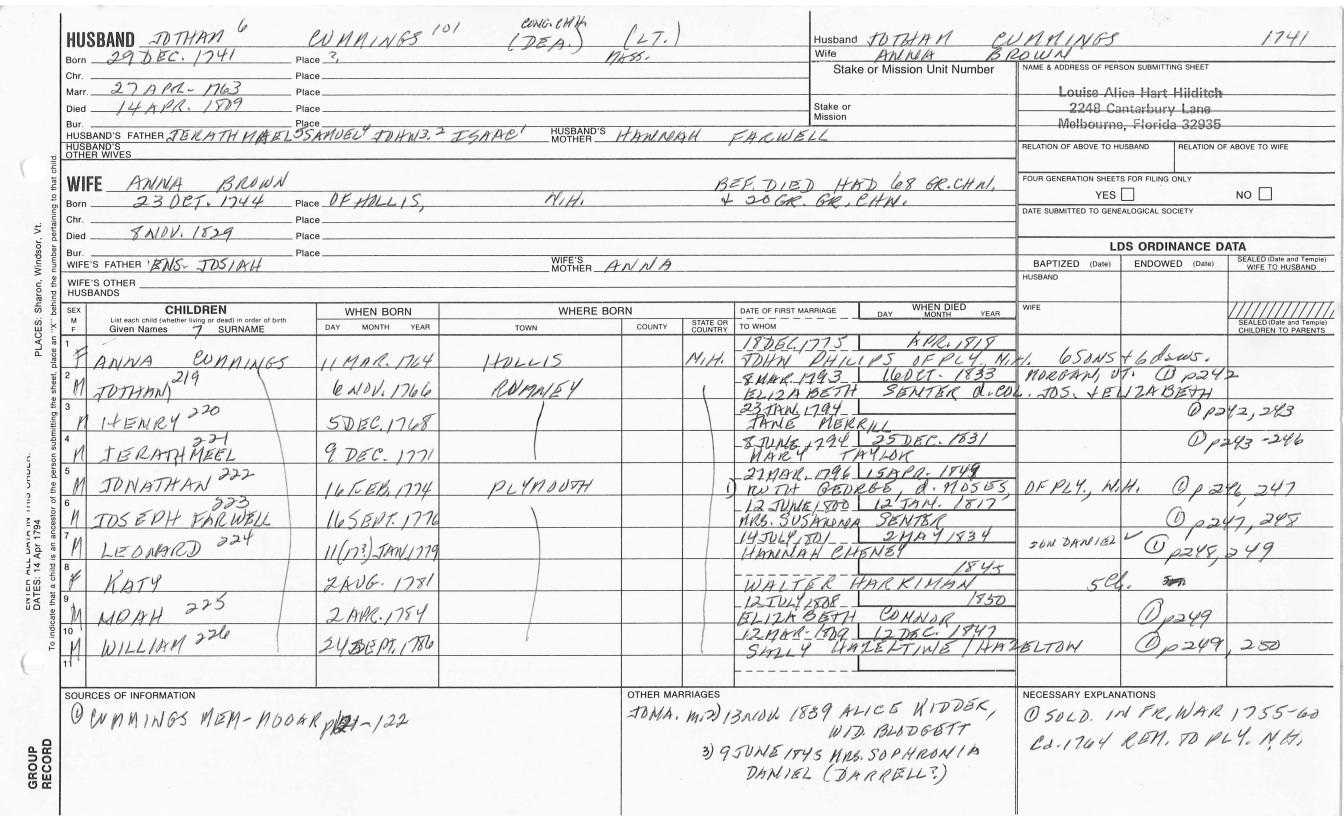 HUSBAND JOTHAM 6 CUMMINGS 101 CONG. CHH. (DEA.) (LT.)
Born 29 DEC. 1741 Place ?, MASS.
Chr. Place
Marr. 27 APR- 1763 Place
Died 14 APR. 1809 Place
Bur. Place
HUSBAND'S FATHER JERATHMAEL5 SAMUEL4 JOHN3,2 ISAAC1 HUSBAND'S MOTHER HANNAH FARWELL
HUSBAND'S OTHER WIVES
WIFE ANNA BROWN BEF. DIED HAD 68 GR.CHN.
Born 23 OCT. 1744 Place OF HOLLIS, N.H. + 20 GR. GR. CHN.
Chr. Place
Died 8 NOV. 1829 Place
Bur. Place
WIFE'S FATHER ENS- JOSIAH WIFE'S MOTHER ANNA
WIFE'S OTHER HUSBANDS
Husband JOTHAM CUMMINGS 1741
Wife ANNA BROWN
Stake or Mission Unit Number
Stake or Mission
NAME & ADDRESS OF PERSON SUBMITTING SHEET
Louise Alica Hart Hilditch
2248 Cantarbury Lane
Melbourne, Florida 32935
RELATION OF ABOVE TO HUSBAND RELATION OF ABOVE TO WIFE
FOUR GENERATION SHEETS FOR FILING ONLY
YES NO
DATE SUBMITTED TO GENEALOGICAL SOCIETY
LDS ORDINANCE DATA
BAPTIZED (Date) ENDOWED (Date) SEALED (Date and Temple) WIFE TO HUSBAND
HUSBAND
WIFE
SEALED (Date and Temple) CHILDREN TO PARENTS
SEX M F
CHILDREN
List each child (whether living or dead) in order of birth
Given Names 7 SURNAME
WHEN BORN
DAY MONTH YEAR
WHERE BORN
TOWN COUNTY STATE OR COUNTRY
DATE OF FIRST MARRIAGE
TO WHOM
WHEN DIED
DAY MONTH YEAR
1 18 DEC. 1775 APR. 1818
F ANNA CUMMINGS 11 MAR. 1764 HOLLIS N.H. JOHN PHILIPS OF PLY, N.H. 6 SONS + 6 daus.
2 8 MAR. 1793 16 OCT. 1833 MORGAN, VT. ① p242
M JOTHAM 219 6 NOV. 1766 RUMNEY ELIZABETH SENTER d. COL. JOS. + ELIZABETH
3 23 JAN. 1794 ① p242, 243
M HENRY 220 5 DEC. 1768 JANE MERRILL
4 8 JUNE, 1794 25 DEC. 1831 ① p243-246
M JERATHMEEL 221 9 DEC. 1771 MARY TAYLOR
5 27 MAR. 1796 15 APR. 1849
M JONATHAN 222 16 FEB. 1774 PLYMOUTH 1) RUTH GEORGE d. MOSES, OF PLY, N.H. ① p246, 247
6 12 JUNE, 1800 12 JAN. 1817
M JOSEPH FARWELL 223 16 SEPT. 1776 MRS. SUSANNA SENTER ① p247, 248
7 14 JULY, 1801 2 MAY 1834
M LEONARD 224 11(17?) JAN. 1779 HANNAH CHENEY SON DANIEL ✓ ① p248, 249
8 1845
F KATY 2 AUG. 1781 WALTER HARRIMAN 5 Ch.
9 12 JULY, 1808 1850
M NOAH 225 2 APR. 1784 ELIZABETH CONNOR ① p249
10 12 MAR- 1809 12 DEC. 1847
M WILLIAM 226 24 SEPT. 1786 SALLY HAZELTINE / HAZELTON ① p249, 250
11
SOURCES OF INFORMATION
① CUMMINGS MEM- MOOAR p121-122
OTHER MARRIAGES
JONA. m. 2) 13 NOV 1839 ALICE KIDDER,
WID. BLODGETT
3) 9 JUNE 1845 MRS. SOPHRONIA
DANIEL (DARRELL?)
NECESSARY EXPLANATIONS
① SOLD. IN FR. WAR 1755-60
Ca. 1764 REM. TO PLY. N.H.
PLACES: Sharon, Windsor, Vt.
ENTER ALL DATA IN THIS ORDER:
DATES: 14 Apr 1794
To indicate that a child is an ancestor of the person submitting the sheet, place an "X" behind the number pertaining to that child.
GROUP RECORD